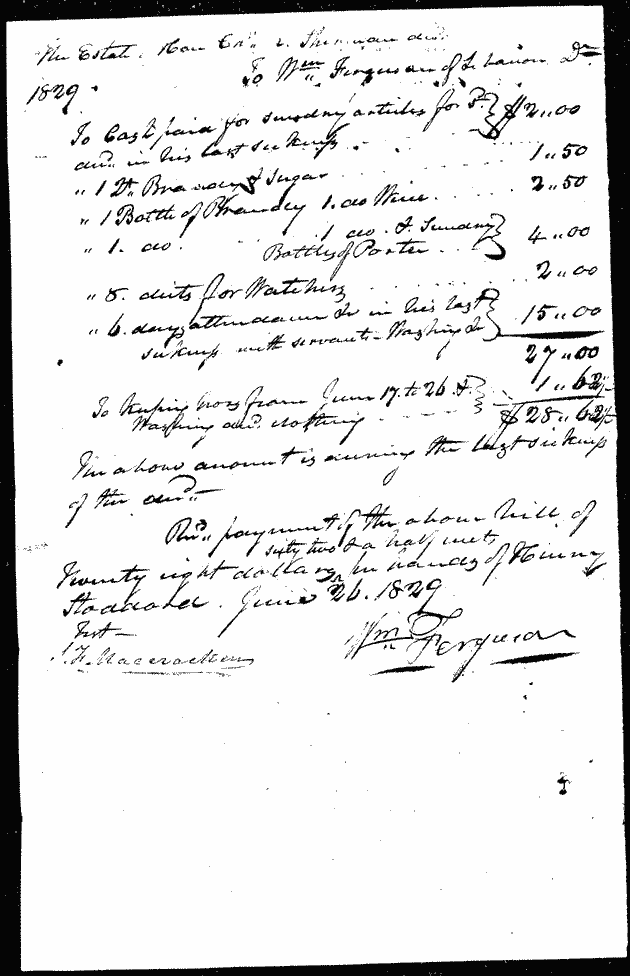 The Estate. Hon Chs. R. Sherman decd.
To Wm Ferguson of Lebanon Dr
1829.
To Cash paid for sundry articles for $2,,00
decd. in his last sickness
" 1 Qt. Brandy & Sugar 1,,50
" 1 Bottle of Brandy 1. do Wine 2,,50
" 1. do. 1 do. & Sundry 4,,00
Bottles of Porter
" 8. diets for Watchers 2,,00
" 6. days attendance &c in his last 15,,00
sickness with servants - Washing &c
27,,00
To Keeping horse from June 17. to 26 & 1,,62½
Washing and clothing $28,,62½
The above amount is during the last sickness
of the decd.
Recd. payment of the above bill of
sixty two & a half cents
Twenty eight dollars, pr hands of Henry
Stoddard. June 26. 1829
Test
Wm Ferguson